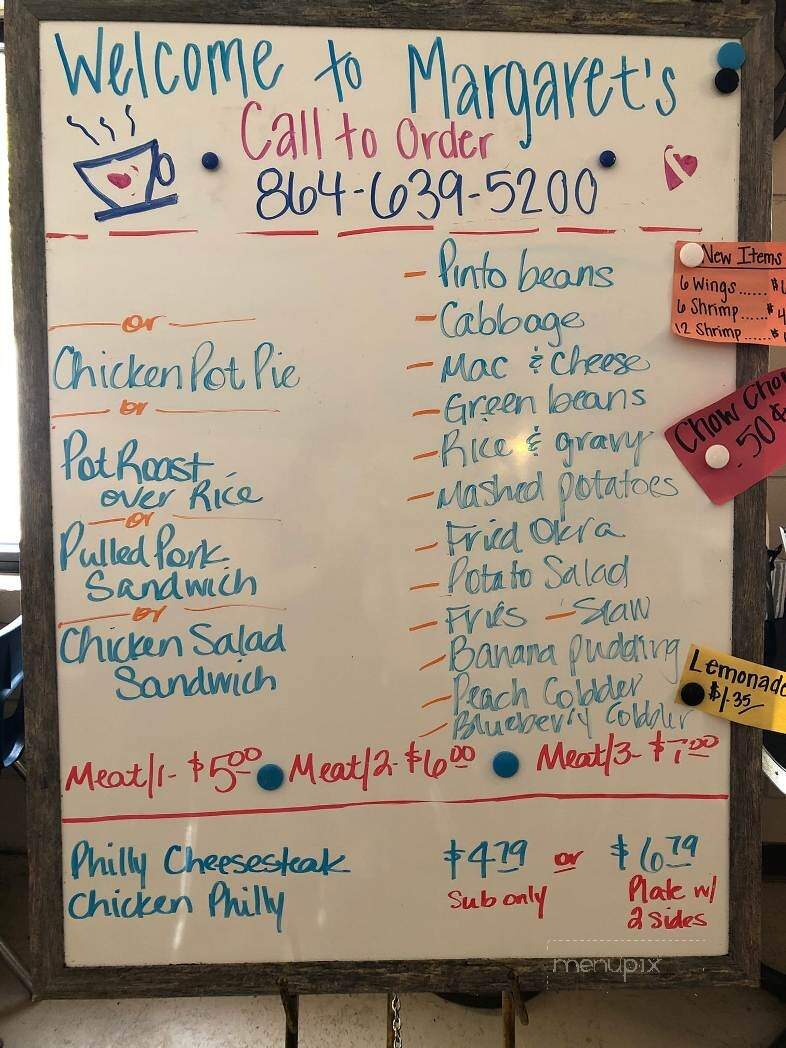 Welcome to Margaret's
Call to Order
864-639-5200
or
Chicken Pot Pie
or
Pot Roast
over Rice
or
Pulled Pork
Sandwich
or
Chicken Salad
Sandwich
- Pinto beans
- Cabbage
- Mac & Cheese
- Green beans
- Rice & gravy
- Mashed potatoes
- Fried Okra
- Potato Salad
- Fries - Slaw
- Banana pudding
- Peach Cobbler
- Blueberry Cobbler
Meat/1- $5.00 Meat/2- $6.00 Meat/3- $7.00
Philly Cheesesteak $4.79 or $6.79
Chicken Philly Sub only Plate w/
2 sides
New Items
6 Wings...... $
6 Shrimp..... $4
12 Shrimp..... $
Chow Chow
.50¢
Lemonade
$1.35
menupix